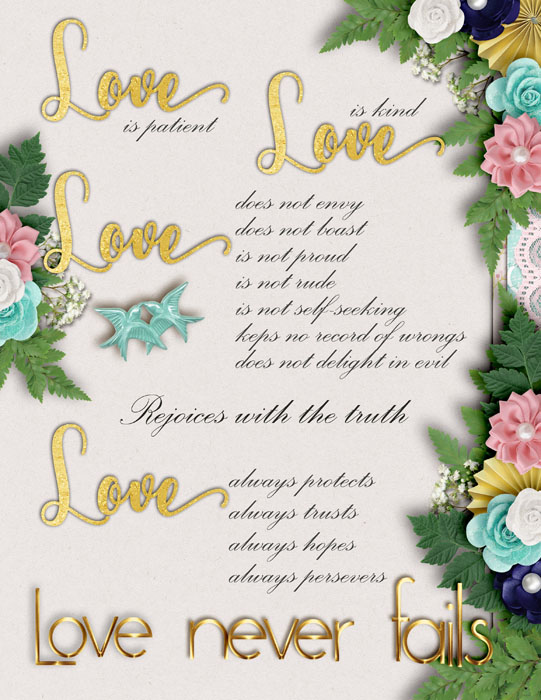 Love
is patient
is kind
Love
Love
does not envy
does not boast
is not proud
is not rude
is not self-seeking
keps no record of wrongs
does not delight in evil
Rejoices with the truth
Love
always protects
always trusts
always hopes
always persevers
Love never fails